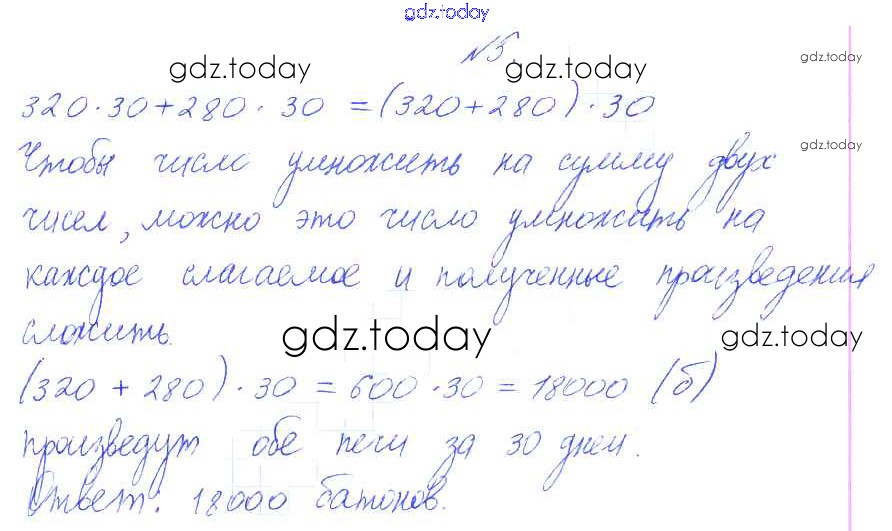 gdz.today
№5.
gdz.today gdz.today gdz.today
320·30+280·30 =(320+280)·30
gdz.today
Чтобы число умножить на сумму двух
чисел, можно это число умножить на
каждое слагаемое и полученные произведения
сложить.
gdz.today gdz.today
(320 + 280)·30 = 600·30 = 18000 (б)
произведут обе печи за 30 дней.
Ответ: 18000 батонов.